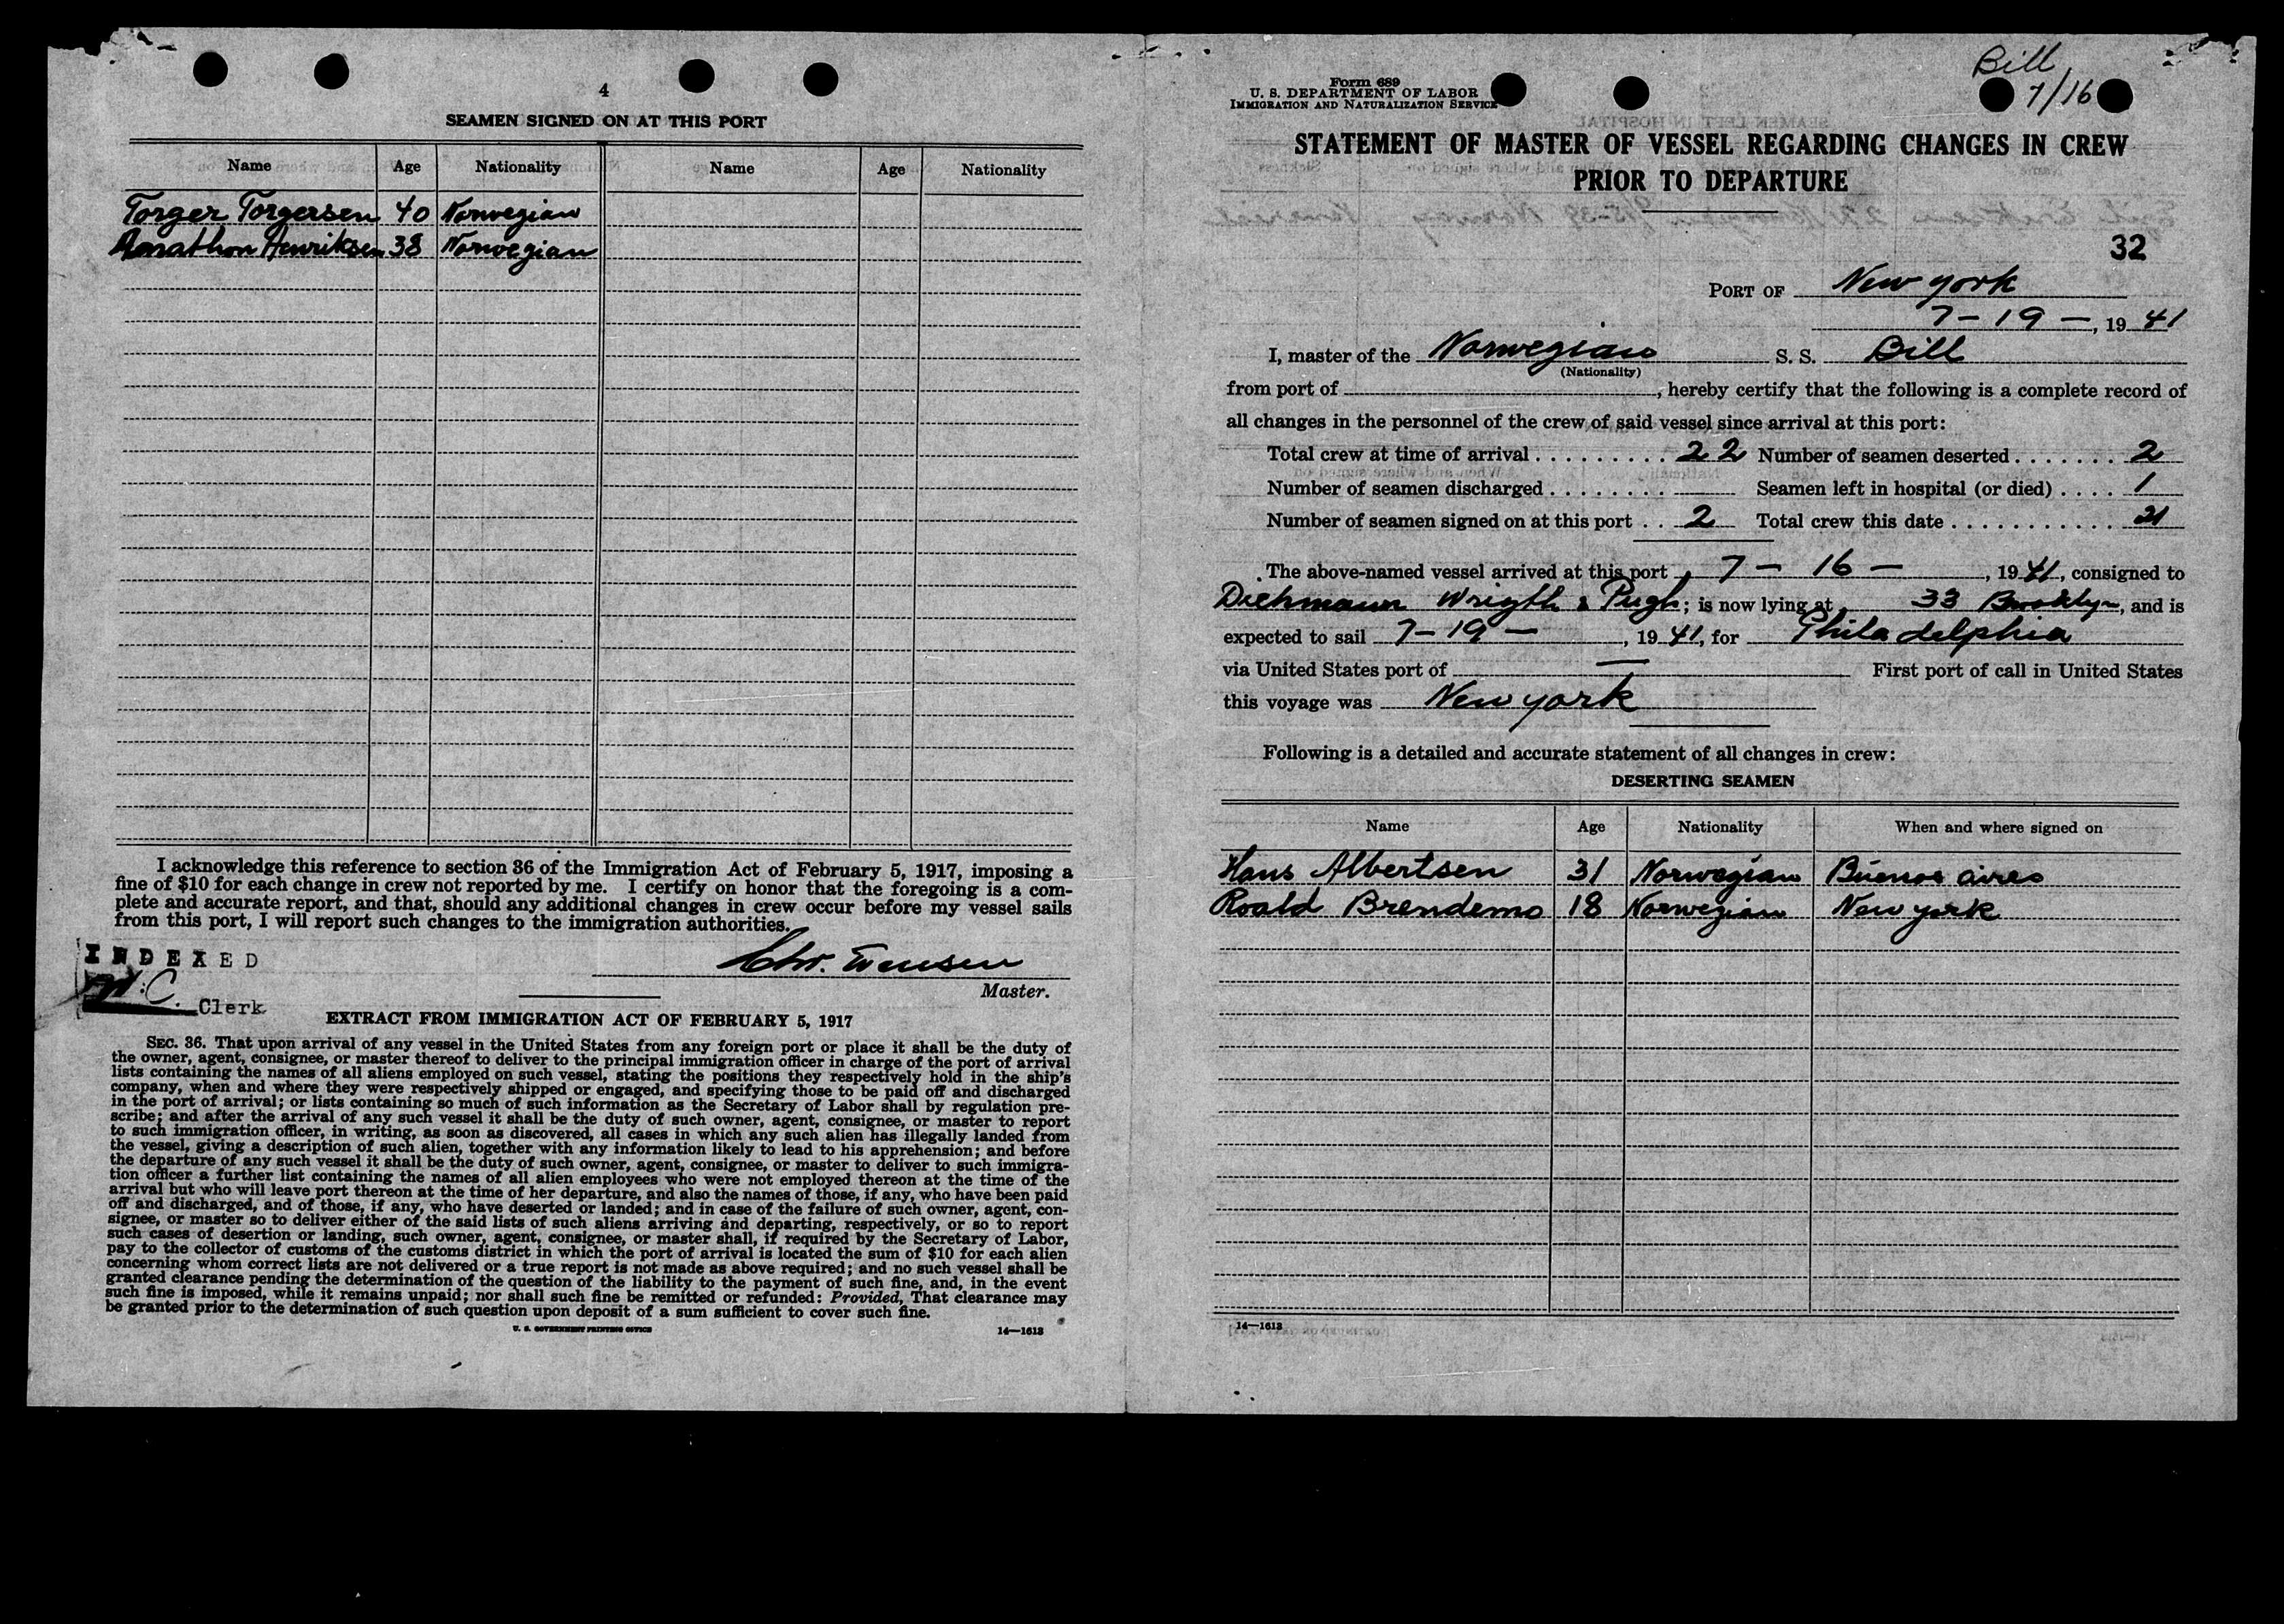 4
SEAMEN SIGNED ON AT THIS PORT
Name Age Nationality Name Age Nationality
Torger Torgersen 40 Norwegian
Henriksen 38 Norwegian
I acknowledge this reference to section 36 of the Immigration Act of February 5, 1917, imposing a
fine of $10 for each change in crew not reported by me. I certify on honor that the foregoing is a com-
plete and accurate report, and that, should any additional changes in crew occur before my vessel sails
from this port, I will report such changes to the immigration authorities.
INDEXED
Chr. Evensen
Master.
Clerk
EXTRACT FROM IMMIGRATION ACT OF FEBRUARY 5, 1917
SEC. 36. That upon arrival of any vessel in the United States from any foreign port or place it shall be the duty of
the owner, agent, consignee, or master thereof to deliver to the principal immigration officer in charge of the port of arrival
lists containing the names of all aliens employed on such vessel, stating the positions they respectively hold in the ship's
company, when and where they were respectively shipped or engaged, and specifying those to be paid off and discharged
in the port of arrival; or lists containing so much of such information as the Secretary of Labor shall by regulation pre-
scribe; and after the arrival of any such vessel it shall be the duty of such owner, agent, consignee, or master to report
to such immigration officer, in writing, as soon as discovered, all cases in which any such alien has illegally landed from
the vessel, giving a description of such alien, together with any information likely to lead to his apprehension; and before
the departure of any such vessel it shall be the duty of such owner, agent, consignee, or master to deliver to such immigra-
tion officer a further list containing the names of all alien employees who were not employed thereon at the time of the
arrival but who will leave port thereon at the time of her departure, and also the names of those, if any, who have been paid
off and discharged, and of those, if any, who have deserted or landed; and in case of the failure of such owner, agent, con-
signee, or master so to deliver either of the said lists of such aliens arriving and departing, respectively, or so to report
such cases of desertion or landing, such owner, agent, consignee, or master shall, if required by the Secretary of Labor,
pay to the collector of customs of the customs district in which the port of arrival is located the sum of $10 for each alien
concerning whom correct lists are not delivered or a true report is not made as above required; and no such vessel shall be
granted clearance pending the determination of the question of the liability to the payment of such fine, and, in the event
such fine is imposed, while it remains unpaid; nor shall such fine be remitted or refunded: Provided, That clearance may
be granted prior to the determination of such question upon deposit of a sum sufficient to cover such fine.
U. S. GOVERNMENT PRINTING OFFICE 14—1613
Bill
7/16
Form 689
U. S. DEPARTMENT OF LABOR
IMMIGRATION AND NATURALIZATION SERVICE
STATEMENT OF MASTER OF VESSEL REGARDING CHANGES IN CREW
PRIOR TO DEPARTURE
32
PORT OF New york
7-19-, 19 41
I, master of the Norwegian S. S. Bill
(Nationality)
from port of , hereby certify that the following is a complete record of
all changes in the personnel of the crew of said vessel since arrival at this port:
Total crew at time of arrival . . . . . . . . . 22 Number of seamen deserted . . . . . . . 2
Number of seamen discharged . . . . . . . . Seamen left in hospital (or died) . . . . 1
Number of seamen signed on at this port . . 2 Total crew this date . . . . . . . . . . . . 21
The above-named vessel arrived at this port 7-16-, 1941, consigned to
Diehmann Wrigth & Pugh; is now lying at 33 Brooklyn, and is
expected to sail 7-19-, 19 41, for Philadelphia
via United States port of — First port of call in United States
this voyage was New york
Following is a detailed and accurate statement of all changes in crew:
DESERTING SEAMEN
Name Age Nationality When and where signed on
Hans Albertsen 31 Norwegian Buenos aires
Roald Brendemo 18 Norwegian New york
14—1613